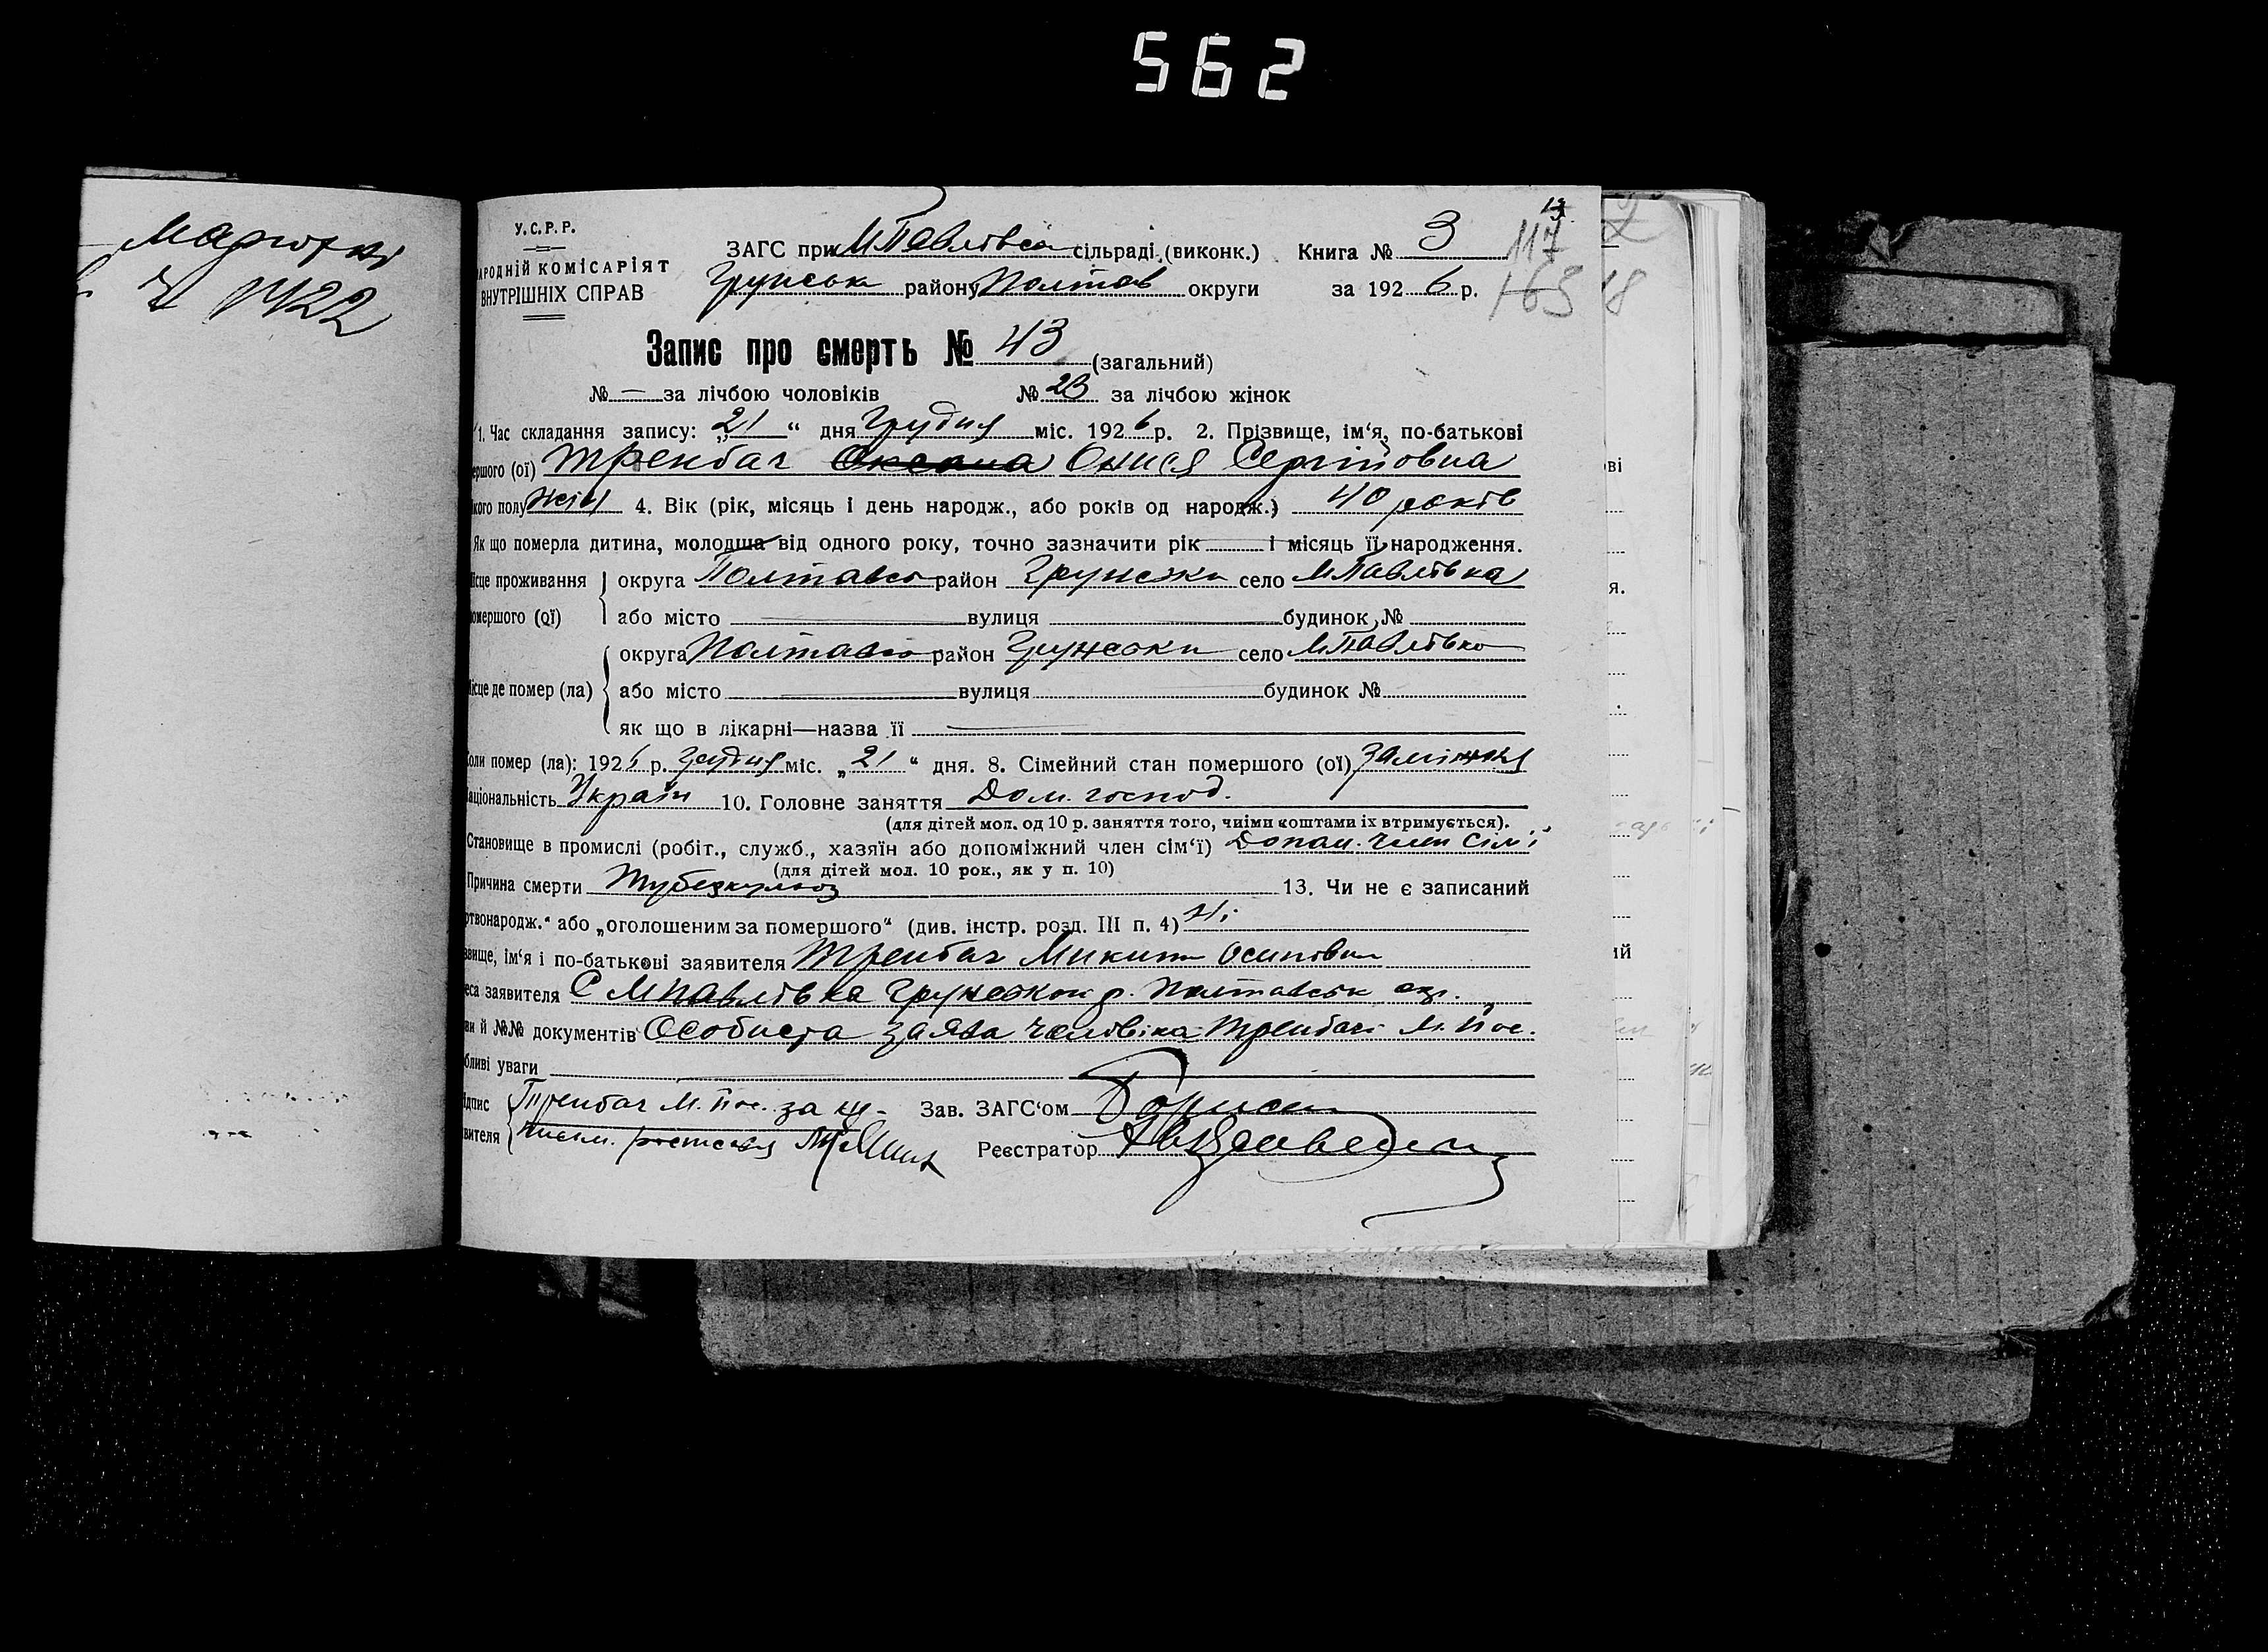 562
У.С.Р.Р.
АРОДНІЙ КОМІСАРІЯТ
ВНУТРІШНІХ СПРАВ
ЗАГС при М Павлівск сільраді (виконк.) Книга № 3
Грунськ району Полтав округи за 1926 р.
117
163
18
Запис про смерть № 43 (загальний)
№ — за лічбою чоловіків № 23 за лічбою жінок
1. Час складання запису: „21“ дня Грудня міс. 1926 р. 2. Прізвище, ім‘я, по-батькові
ершого (ої) Тренбач Оксана Онися Сергійовна
кого полу Жін 4. Вік (рік, місяць і день народж., або років од народж.) 40 років
Як що померла дитина, молодша від одного року, точно зазначити рік і місяць її народження.
ісце проживання округа Полтавськ район Грунськи село М Павлівка
омершого (ої) або місто вулиця будинок №
округа Полтавськ район Грунськи село М Павлівка
ісце де помер (ла) або місто вулиця будинок №
як що в лікарні—назва її
Коли помер (ла): 1926 р. Грудня міс. „21“ дня. 8. Сімейний стан помершого (ої) заміжня
аціональність Україн 10. Головне заняття Дом. господ.
(для дітей мол. од 10 р. заняття того, чиїми коштами їх втримується).
Становище в промислі (робіт., служб., хазяїн або допоміжний член сім‘ї) Допом. член сім'ї
(для дітей мол. 10 рок., як у п. 10)
Причина смерти Туберкульоз 13. Чи не є записаний
ртвонародж.“ або „оголошеним за помершого“ (див. інстр. розд. III п. 4) Ні
звище, ім‘я і по-батькові заявителя Тренбач Микита Осипович
еса заявителя С М Павлівка Грунськог р. Полтавськ окр.
ви й №№ документів Особиста заява чоловіка Тренбача М. Йос.
бливі уваги
ідпис Тренбач М. Йос. за це Зав. ЗАГС‘ом
вителя Реєстратор